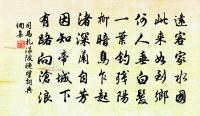 遠客家水國
此來如到鄉
何人垂白髮
一葉釣殘陽
柳暗鳥乍起
渚深蘭自芳
因知帝城下
有路向滄浪
司馬扎滻陂晚望詞典
網集